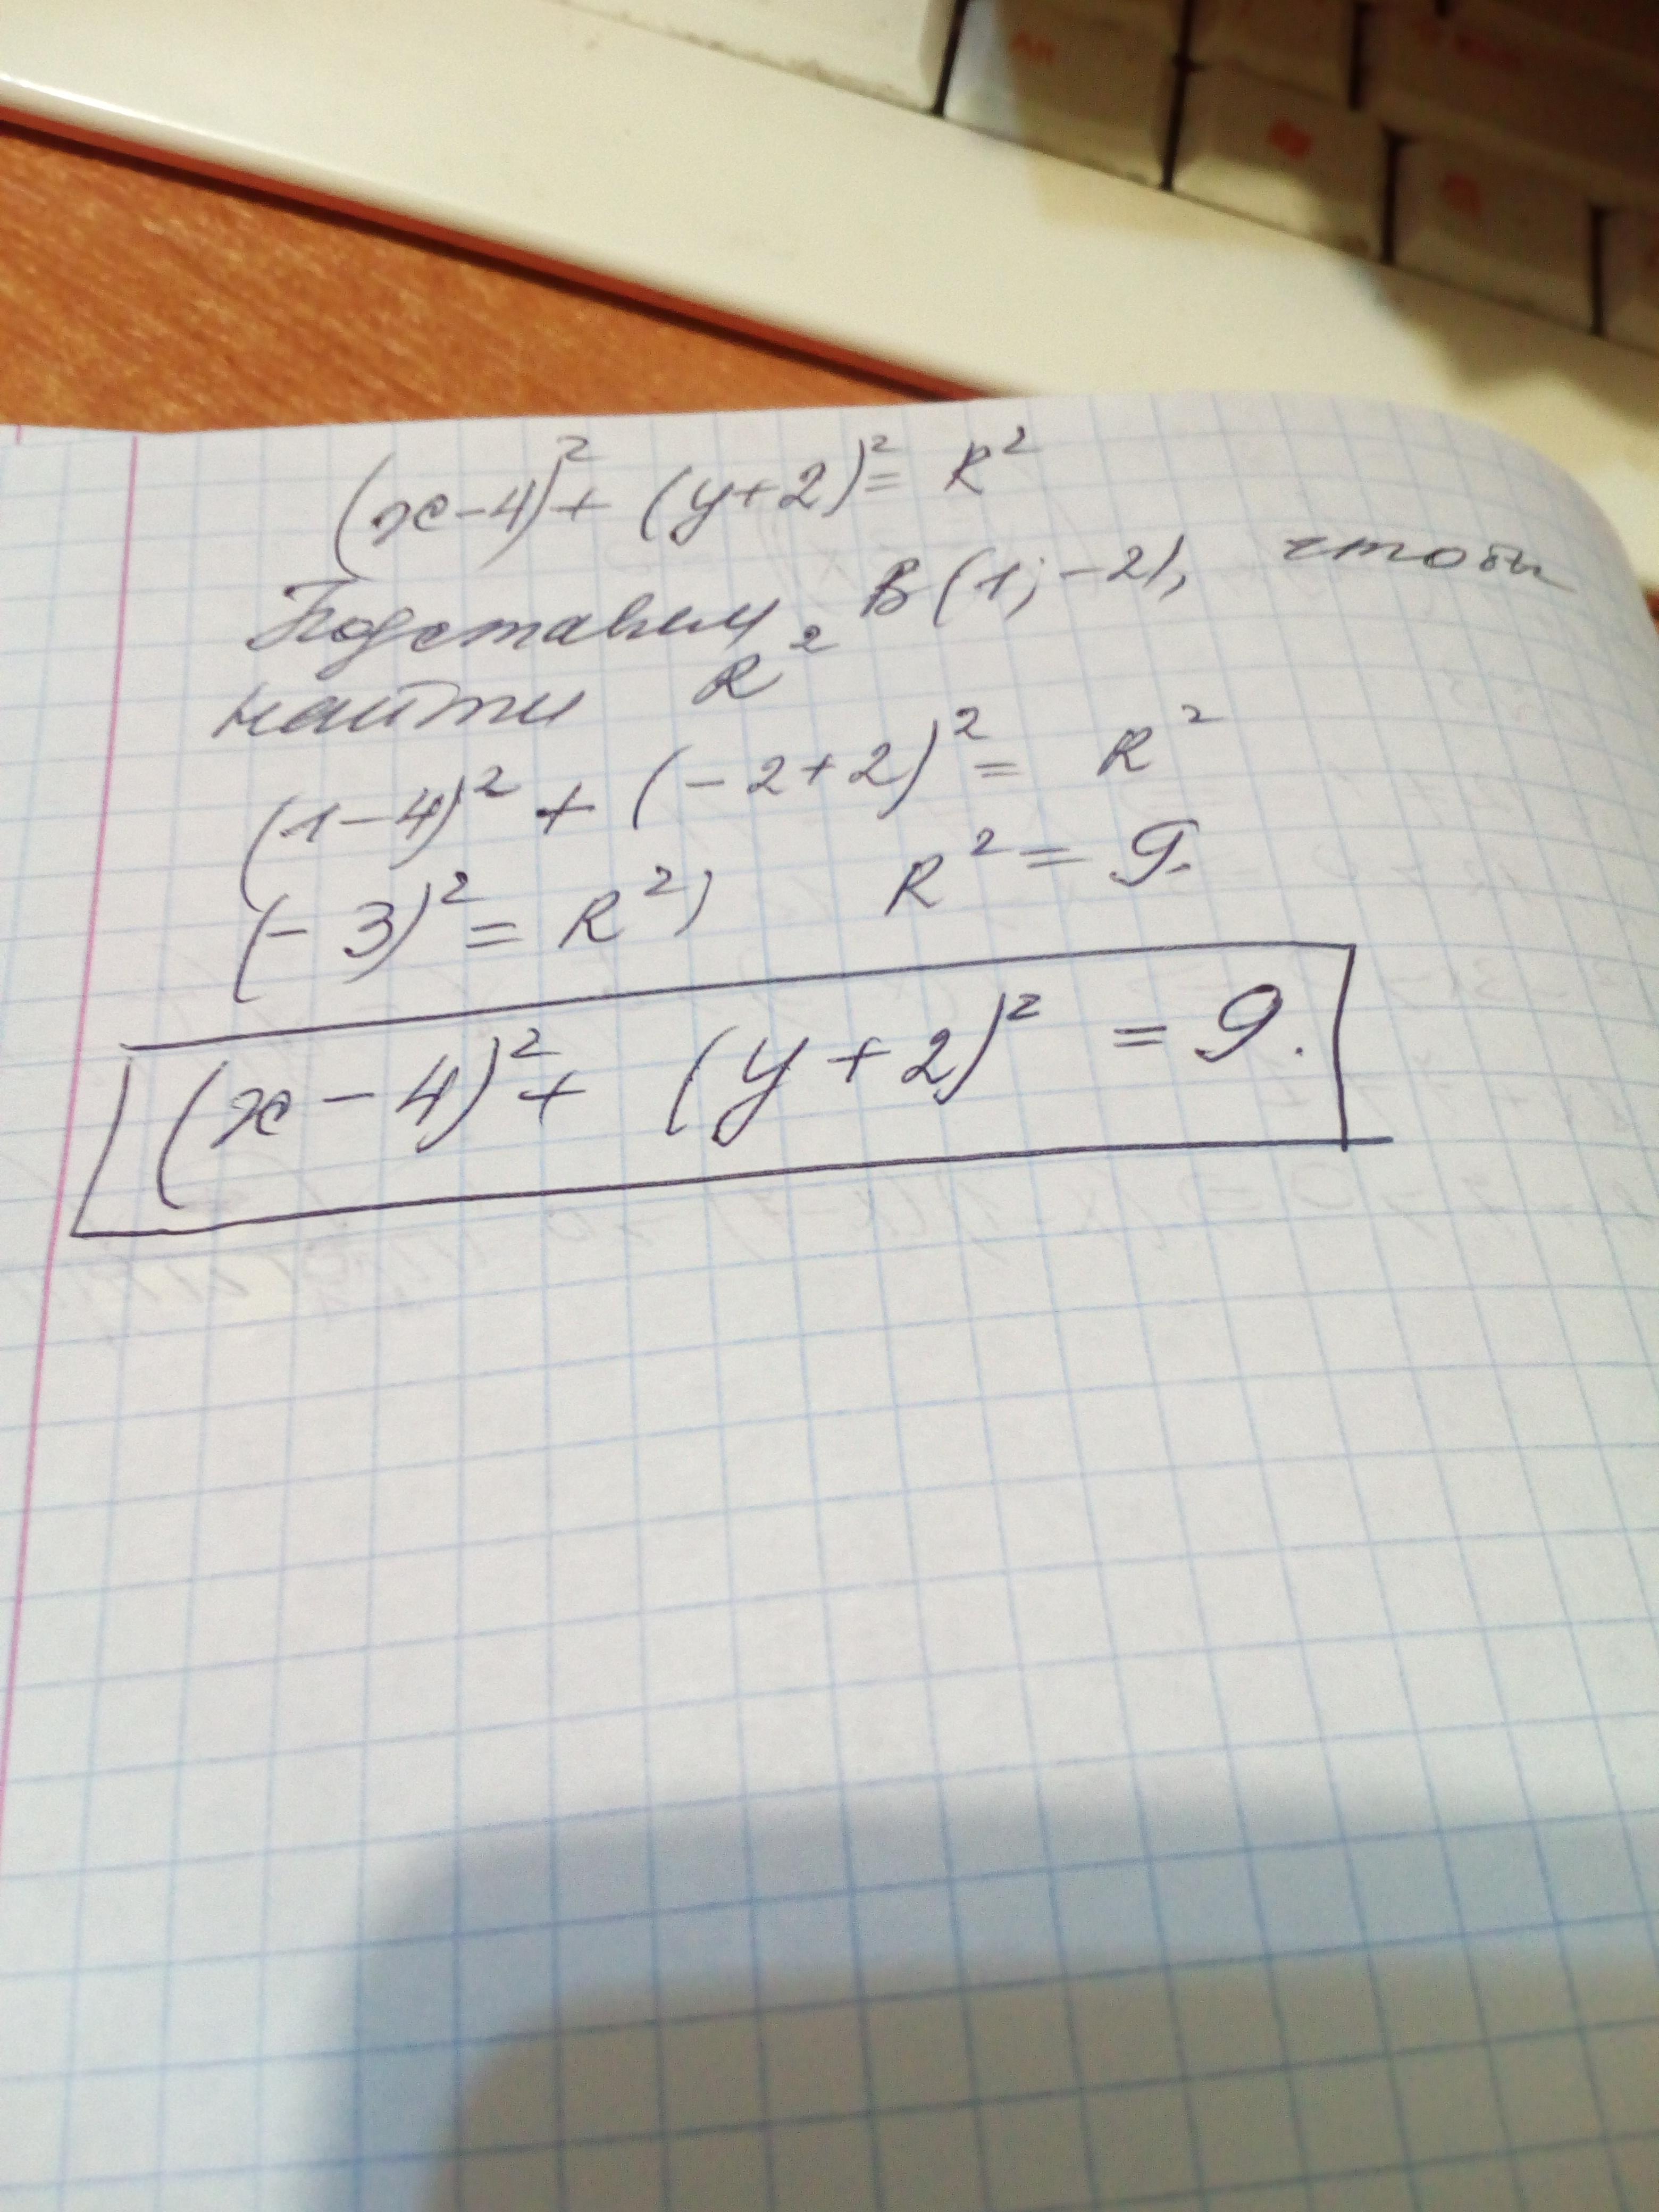 (x-4)²+ (y+2)²= R²
Подставим B(1; -2), чтобы
найти R²
(1-4)² + (-2+2)² = R²
(-3)² = R²; R² = 9.
(x-4)²+ (y+2)² = 9.